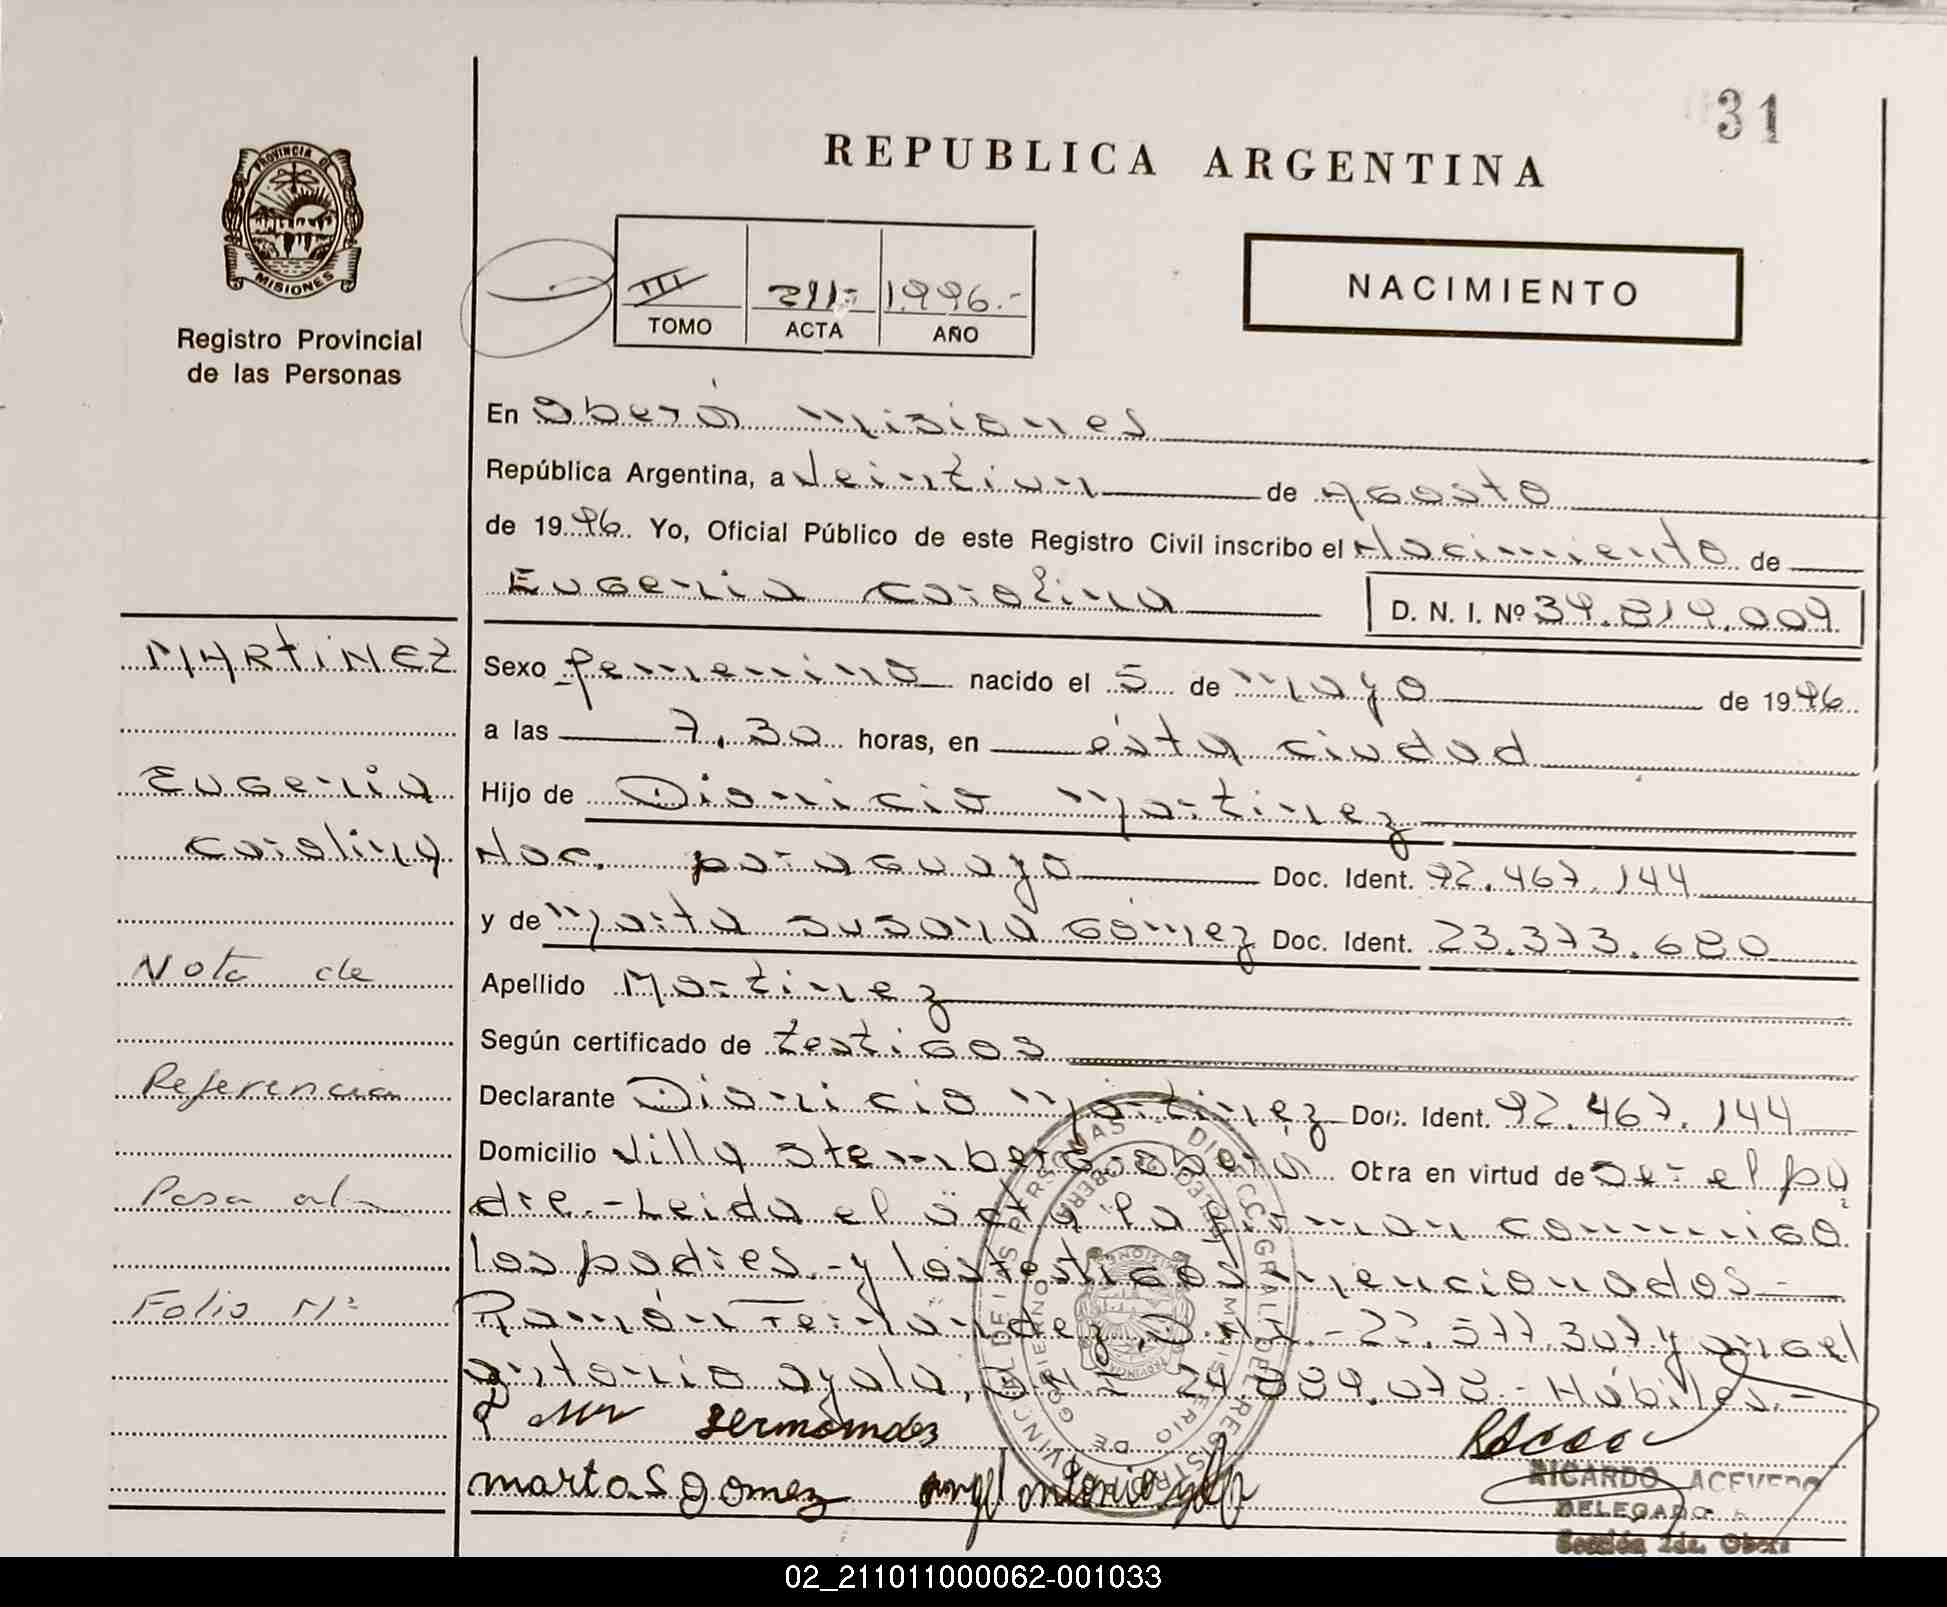 31
REPUBLICA ARGENTINA
PROVINCIA DE
MISIONES
Registro Provincial
de las Personas
III 211.- 1.996.-
TOMO ACTA AÑO
NACIMIENTO
En Oberá Misiones
República Argentina, a Veintiun de Agosto
de 1996. Yo, Oficial Público de este Registro Civil inscribo el Nacimiento de
Eugenia Carolina D. N. I. Nº 39.819.009
MARTINEZ
Eugenia
Carolina
Nota de
Referencia
Pasa al
Folio Nº
Sexo femenino nacido el 5 de mayo de 1996
a las 7,30 horas, en ésta ciudad
Hijo de Dionicio Martinez
Nac. paraguayo Doc. Ident. 92.467.144
y de Marta Susana Gómez Doc. Ident. 23.373.680
Apellido Martinez
Según certificado de testigos
Declarante Dionicio Martinez Doc. Ident. 92.467.144
Domicilio Villa Stemberg-Oberá Obra en virtud de Ser el pa
dre.-Leida el acta la firman conmigo
los padres.-y los testigos mencionados-
Ramón Fernández, D.N.I.-22.577.307 y Angel
Antonio Ayala, D.N.I 24.889.078.-Hábiles.-
sermomdes
marta S gomez angel antonio
RICARDO ACEVEDO
DELEGADO
Sección 1da. Oberá
02_211011000062-001033